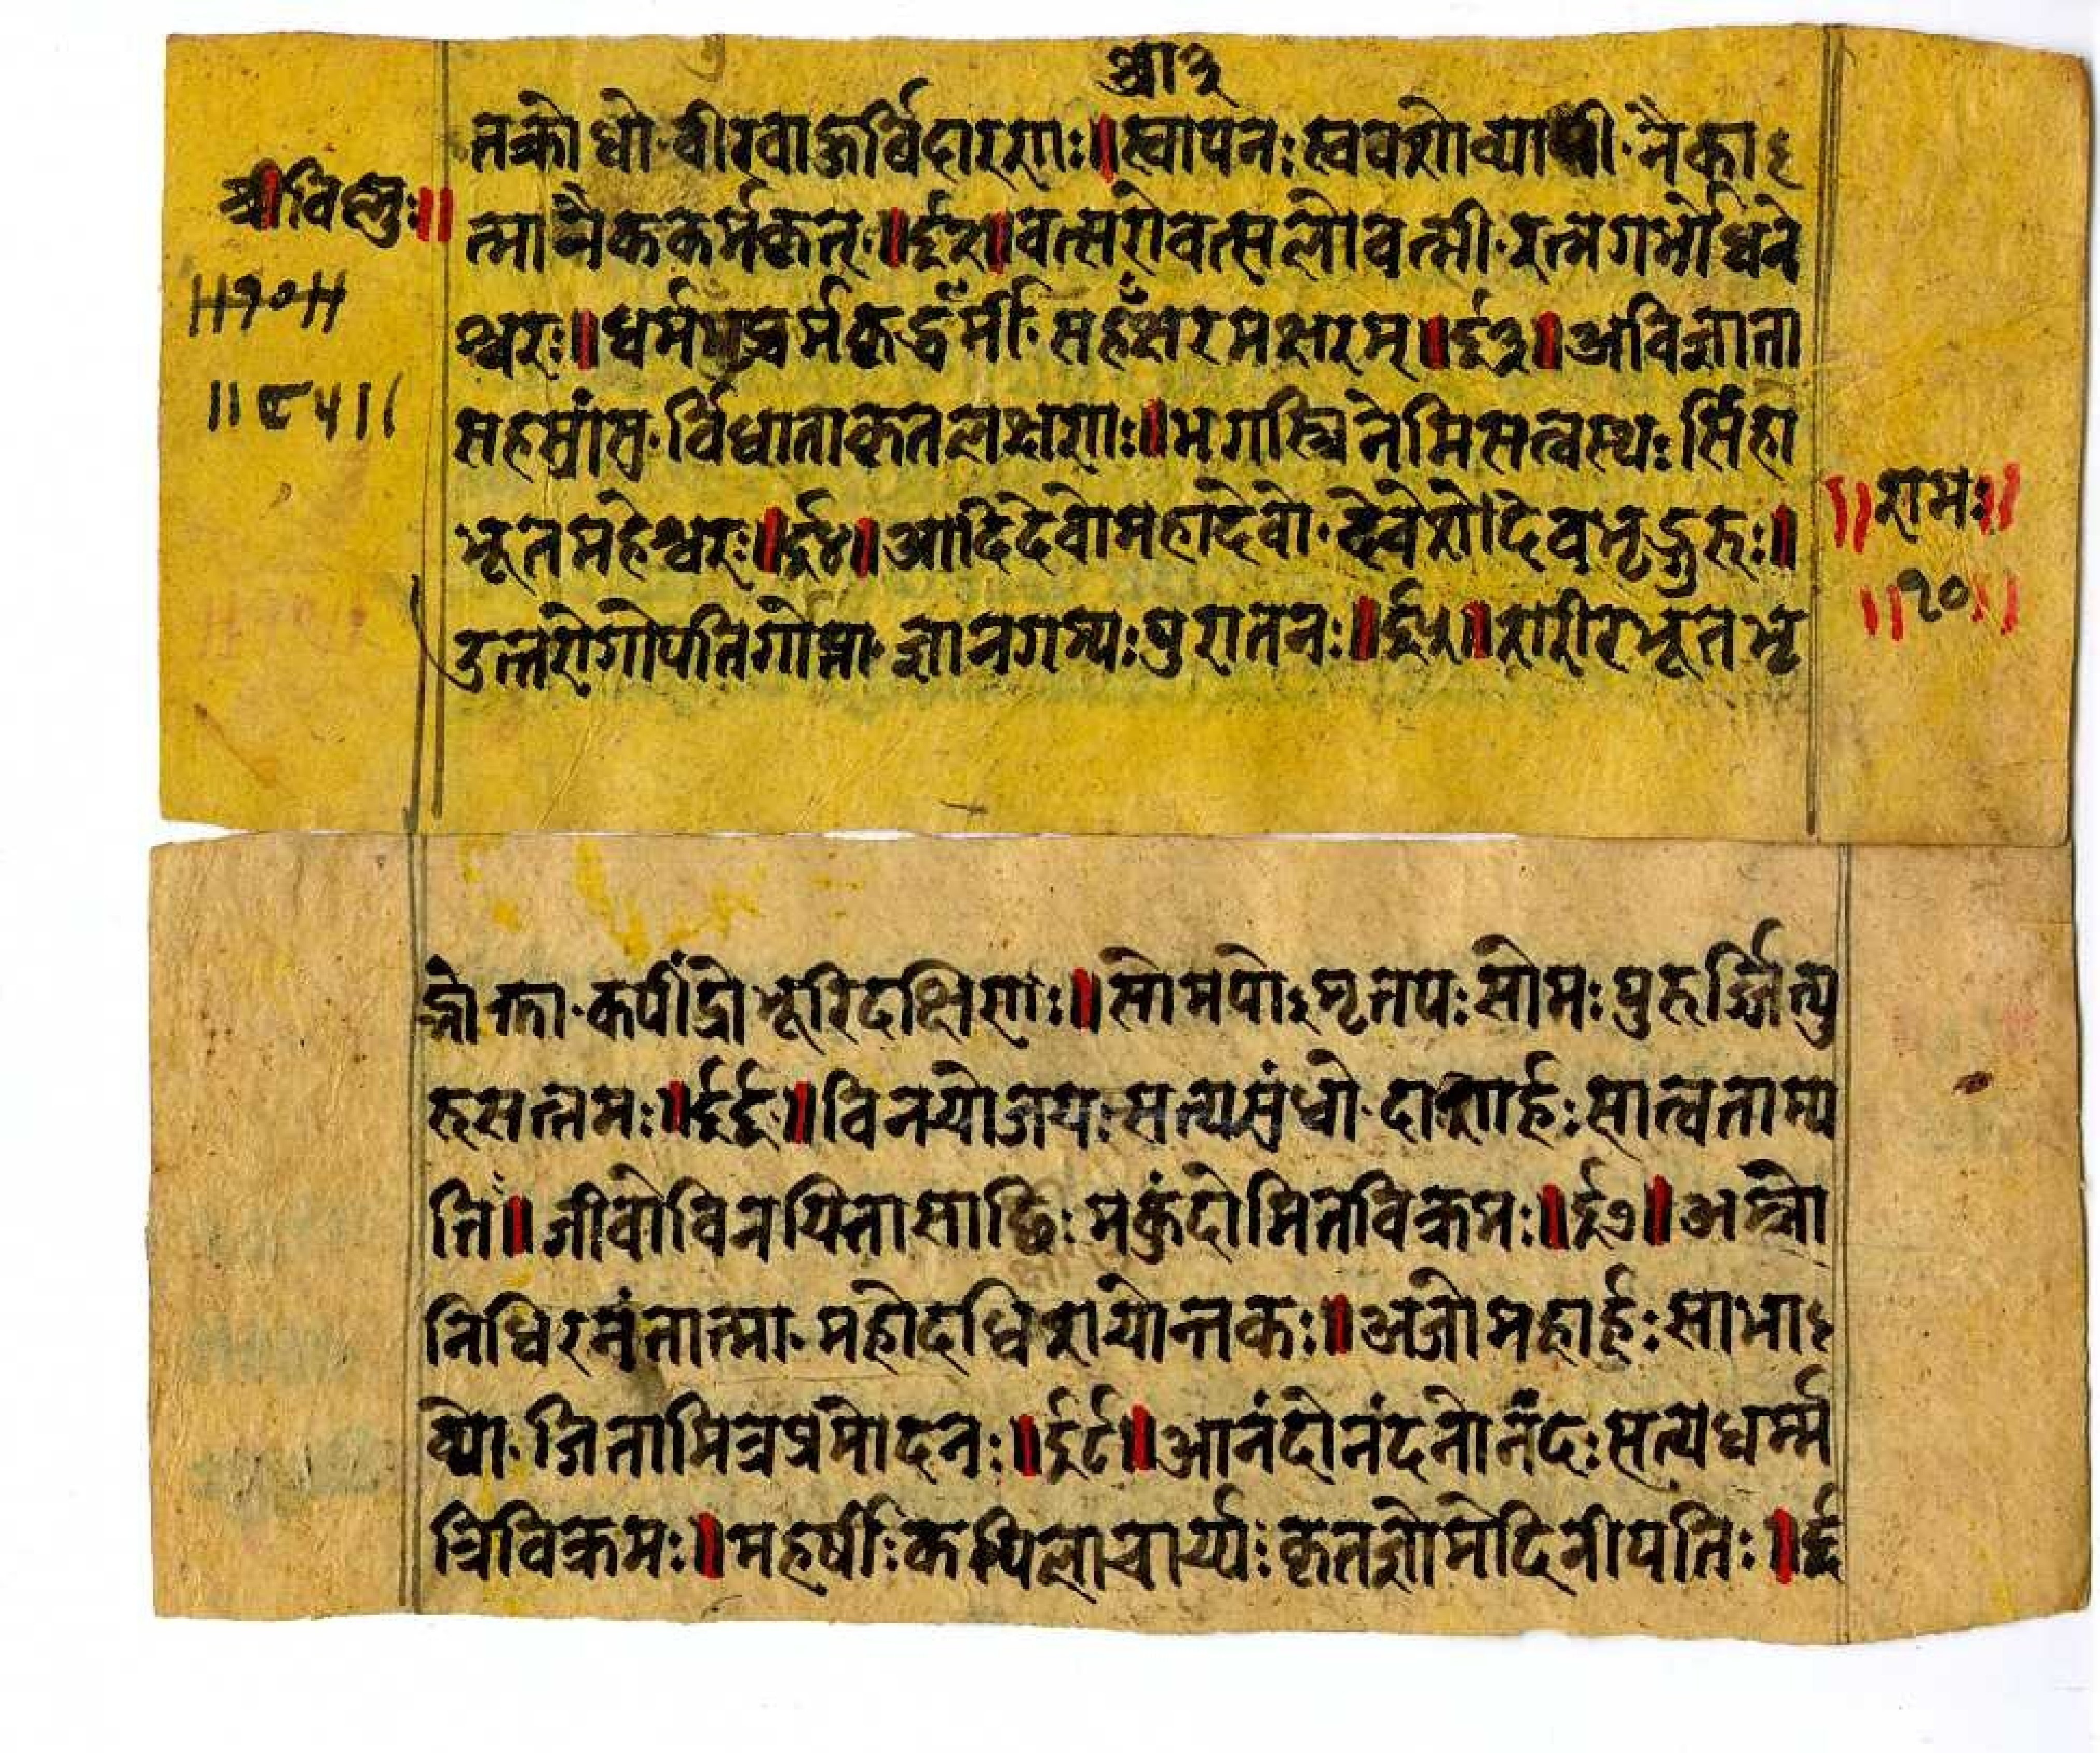 श्रा ३
तक्रोधो वीरवाऊर्विदारणः॥ स्वापनः स्ववशो व्यापी नैका
श्रीविष्णुः॥
त्मा नैककर्मकृत् ॥६२॥ वत्सरो वत्सलो वत्सी रत्नगर्भो धने
॥१०॥
श्वरः॥ सहक्षरमक्षरम् ॥६३॥ अविज्ञाता
॥८५॥
सहस्रांसु र्विधाता कृतलक्षणः॥ भगस्तिनेमि सत्वस्थः सिंहो
भूतमहेश्वरः॥६४॥ आदिदेवो महादेवो देवेशो देवभृद्गुरुः॥
॥रामः॥
॥१०॥
उत्तरो गोपतिर्गोप्ता ज्ञानगम्यः पुरातनः॥६५॥ शरीरभूतभृ
द्भोक्ता कपींद्रो भूरिदक्षिणः॥ सोमपोऽमृतपः सोमः पुरुर्ज्जित्पु
रुसत्तमः॥६६॥ विनयो जयः सत्यसंधो दाशार्हः सात्वताम्प
तिः॥ जीवो विनयिता साक्षिः मकुंदोमितविक्रमः॥६७॥ अम्भो
निधिरनंतात्मा महोदधिशयोन्तकः॥ अजो महार्हः साभा
व्यो जितामित्रप्रमोदनः॥६८॥ आनंदो नंदनो नंदः सत्यधर्म्म
त्रिविक्रमः॥ महर्षीः कपिलाचार्य्यः कृतज्ञो मेदिनीपतिः॥६